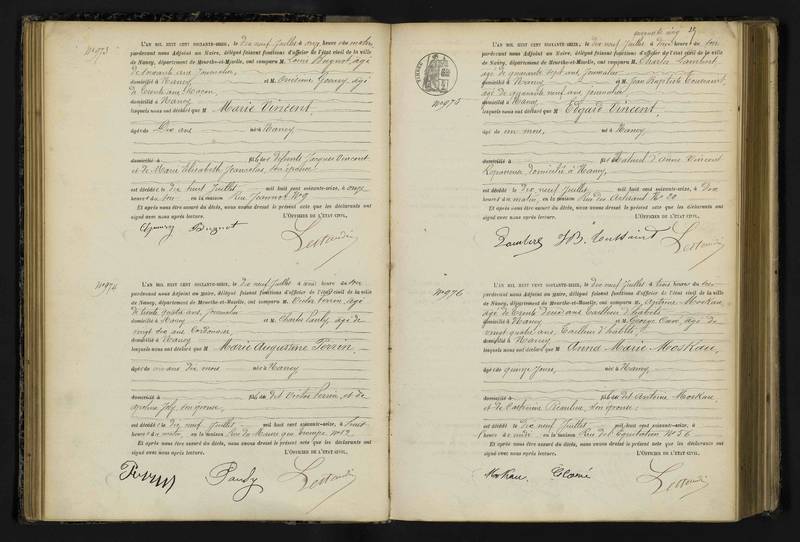 N° 973
L'AN MIL HUIT CENT SOIXANTE-SEIZE, le dix neuf Juillet à onze heures du matin,
pardevant nous Adjoint au Maire, délégué faisant fonctions d'officier de l'état civil de la ville
de Nancy, département de Meurthe-et-Moselle, ont comparu M. Louis Bugnot, âgé
de soixante ans, Journalier,
domicilié à Nancy et M. âgé
de trente ans, Maçon,
domicilié à Nancy
lesquels nous ont déclaré que M Marie Vincent,
âgée de Dix ans née à Nancy
domicilié à fille de défunts Jacques Vincent
et de Marie Elisabeth son épouse
est décédée le dix huit Juillet mil huit cent soixante-seize, à onze
heures du soir, en la maison Rue Jeannot N° 9
Et après nous être assuré du décès, nous avons dressé le présent acte que les déclarants ont
signé avec nous après lecture. L'OFFICIER DE L'ÉTAT CIVIL,
Bugnot
N° 974
L'AN MIL HUIT CENT SOIXANTE-SEIZE, le dix neuf Juillet à trois heures du soir
pardevant nous Adjoint au Maire, délégué faisant fonctions d'officier de l'état civil de la ville
de Nancy, département de Meurthe-et-Moselle, ont comparu M. Victor Perrin, âgé
de trente quatre ans, Journalier
domicilié à Nancy et M. Charles âgé de
vingt dix ans Cordonnier
domicilié à Nancy
lesquels nous ont déclaré que M Marie Augustine Perrin,
âgée de un an dix mois née à Nancy
domicilié à fille de dit Victor Perrin, et de
son épouse,
est décédée le dix neuf Juillet mil huit cent soixante-seize, à huit
heures du matin, en la maison Rue du N° 12
Et après nous être assuré du décès, nous avons dressé le présent acte que les déclarants ont
signé avec nous après lecture. L'OFFICIER DE L'ÉTAT CIVIL,
Perrin
TIMBRE
N° 975
L'AN MIL HUIT CENT SOIXANTE-SEIZE, le dix neuf Juillet à trois heures du soir
pardevant nous Adjoint au Maire, délégué faisant fonctions d'officier de l'état civil de la ville
de Nancy, département de Meurthe-et-Moselle, ont comparu M. Charles Lambert,
âgé de quarante sept ans, Journalier
domicilié à Nancy et M. Jean Baptiste Toussaint,
âgé de quarante neuf ans, Journalier
domicilié à Nancy
lesquels nous ont déclaré que M Edgard Vincent,
âgé de un mois, né à Nancy,
domicilié à fils naturel d'Anne Vincent
domiciliée à Nancy,
est décédé le dix neuf Juillet mil huit cent soixante-seize, à dix
heures du matin, en la maison Rue des Artisans N° 20
Et après nous être assuré du décès, nous avons dressé le présent acte que les déclarants ont
signé avec nous après lecture. L'OFFICIER DE L'ÉTAT CIVIL,
Lambert JB. Toussaint
N° 976
L'AN MIL HUIT CENT SOIXANTE-SEIZE, le dix neuf Juillet à trois heures du soir
pardevant nous Adjoint au Maire, délégué faisant fonctions d'officier de l'état civil de la ville
de Nancy, département de Meurthe-et-Moselle, ont comparu M. Antoine Moskau,
âgé de trente deux ans Tailleur d'habits
domicilié à Nancy et M. George âgé de
vingt quatre ans, Tailleur d'habits,
domicilié à Nancy
lesquels nous ont déclaré que M Anna Marie Moskau,
âgée de quinze jours, née à Nancy,
domicilié à fille de dit Antoine Moskau,
et de Catherine son épouse;
est décédée le dix neuf Juillet mil huit cent soixante-seize, à
heure de midi, en la maison Rue de l'Equitation N° 56
Et après nous être assuré du décès, nous avons dressé le présent acte que les déclarants ont
signé avec nous après lecture. L'OFFICIER DE L'ÉTAT CIVIL,
Moskau